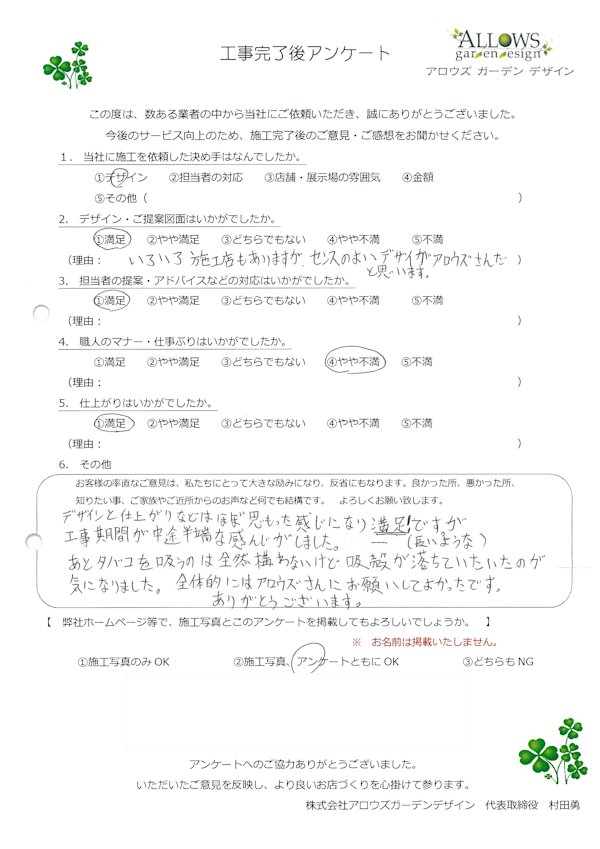 工事完了後アンケート
ALLOWS
garden design
アロウズ ガーデン デザイン
この度は、数ある業者の中から当社にご依頼いただき、誠にありがとうございました。
今後のサービス向上のため、施工完了後のご意見・ご感想をお聞かせください。
1. 当社に施工を依頼した決め手はなんでしたか。
①デザイン ②担当者の対応 ③店舗・展示場の雰囲気 ④金額
⑤その他（ ）
2. デザイン・ご提案図面はいかがでしたか。
①満足 ②やや満足 ③どちらでもない ④やや不満 ⑤不満
（理由： いろいろ施工店もありますが、センスのよいデザインがアロウズさんだ ）
と思います。
3. 担当者の提案・アドバイスなどの対応はいかがでしたか。
①満足 ②やや満足 ③どちらでもない ④やや不満 ⑤不満
（理由： ）
4. 職人のマナー・仕事ぶりはいかがでしたか。
①満足 ②やや満足 ③どちらでもない ④やや不満 ⑤不満
（理由： ）
5. 仕上がりはいかがでしたか。
①満足 ②やや満足 ③どちらでもない ④やや不満 ⑤不満
（理由： ）
6. その他
お客様の率直なご意見は、私たちにとって大きな励みになり、反省にもなります。良かった所、悪かった所、
知りたい事、ご家族やご近所からのお声など何でも結構です。 よろしくお願い致します。
デザインと仕上がりなどはほぼ思もった感じになり満足!ですが
工事期間が中途半端な感んじがしました。（長いような）
あとタバコを吸うのは全然構わないけど吸殻が落ちていたいたのが
気になりました。 全体的にはアロウズさんにお願いしてよかったです。
ありがとうございます。
【 弊社ホームページ等で、施工写真とこのアンケートを掲載してもよろしいでしょうか。 】
※ お名前は掲載いたしません。
①施工写真のみOK ②施工写真、アンケートともにOK ③どちらもNG
アンケートへのご協力ありがとうございました。
いただいたご意見を反映し、より良いお店づくりを心掛けて参ります。
株式会社アロウズガーデンデザイン 代表取締役 村田勇